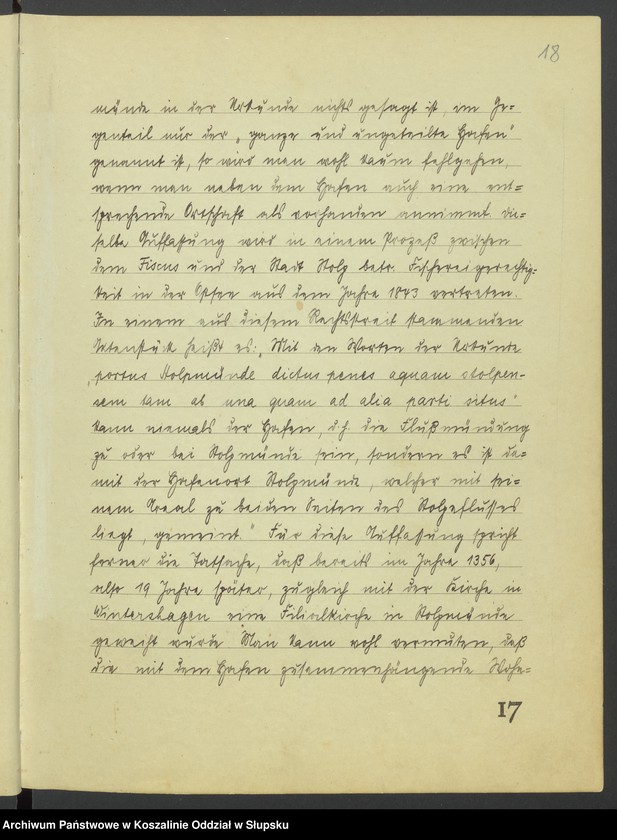 18
münde in der Urkunde nichts gesagt ist, im Ge=
genteil nur der „ganze und ungeteilte Hafen“
genannt ist, so wird man wohl kaum fehlgehen,
wenn man neben dem Hafen auch eine ent=
sprechende Ortschaft als vorhanden annimmt. die=
selbe Auffassung wird in einem Prozeß zwischen
dem Fiscus und der Stadt Stolp betr. Fischereigerechtig=
keit in der Ostsee aus dem Jahre 1843 vertreten.
In einem aus diesem Rechtsstreit stammenden
Aktenstück heißt es: „Mit den Worten der Urkunde
„portus Stolpmünde dictus penes aquam stolpen-
sem tam ab una quam ad alia parti situs“
kann niemals der Hafen, d.h. die Flußmündung
zu oder bei Stolpmünde sein, sondern es ist da=
mit der Hafenort Stolpmünde, welcher mit sei=
nem Areal zu beiden Seiten des Stolpeflusses
liegt, gemeint.“ Für diese Auffassung spricht
ferner die Tatsache, daß bereits im Jahre 1356,
also 19 Jahre später, zugleich mit der Kirche in
Wintershagen eine Filialkirche in Stolpmünde
geweiht wurde. Man kann wohl vermuten, daß
die mit dem Hafen zusammenhängende Wohn=
17
Archiwum Państwowe w Koszalinie Oddział w Słupsku